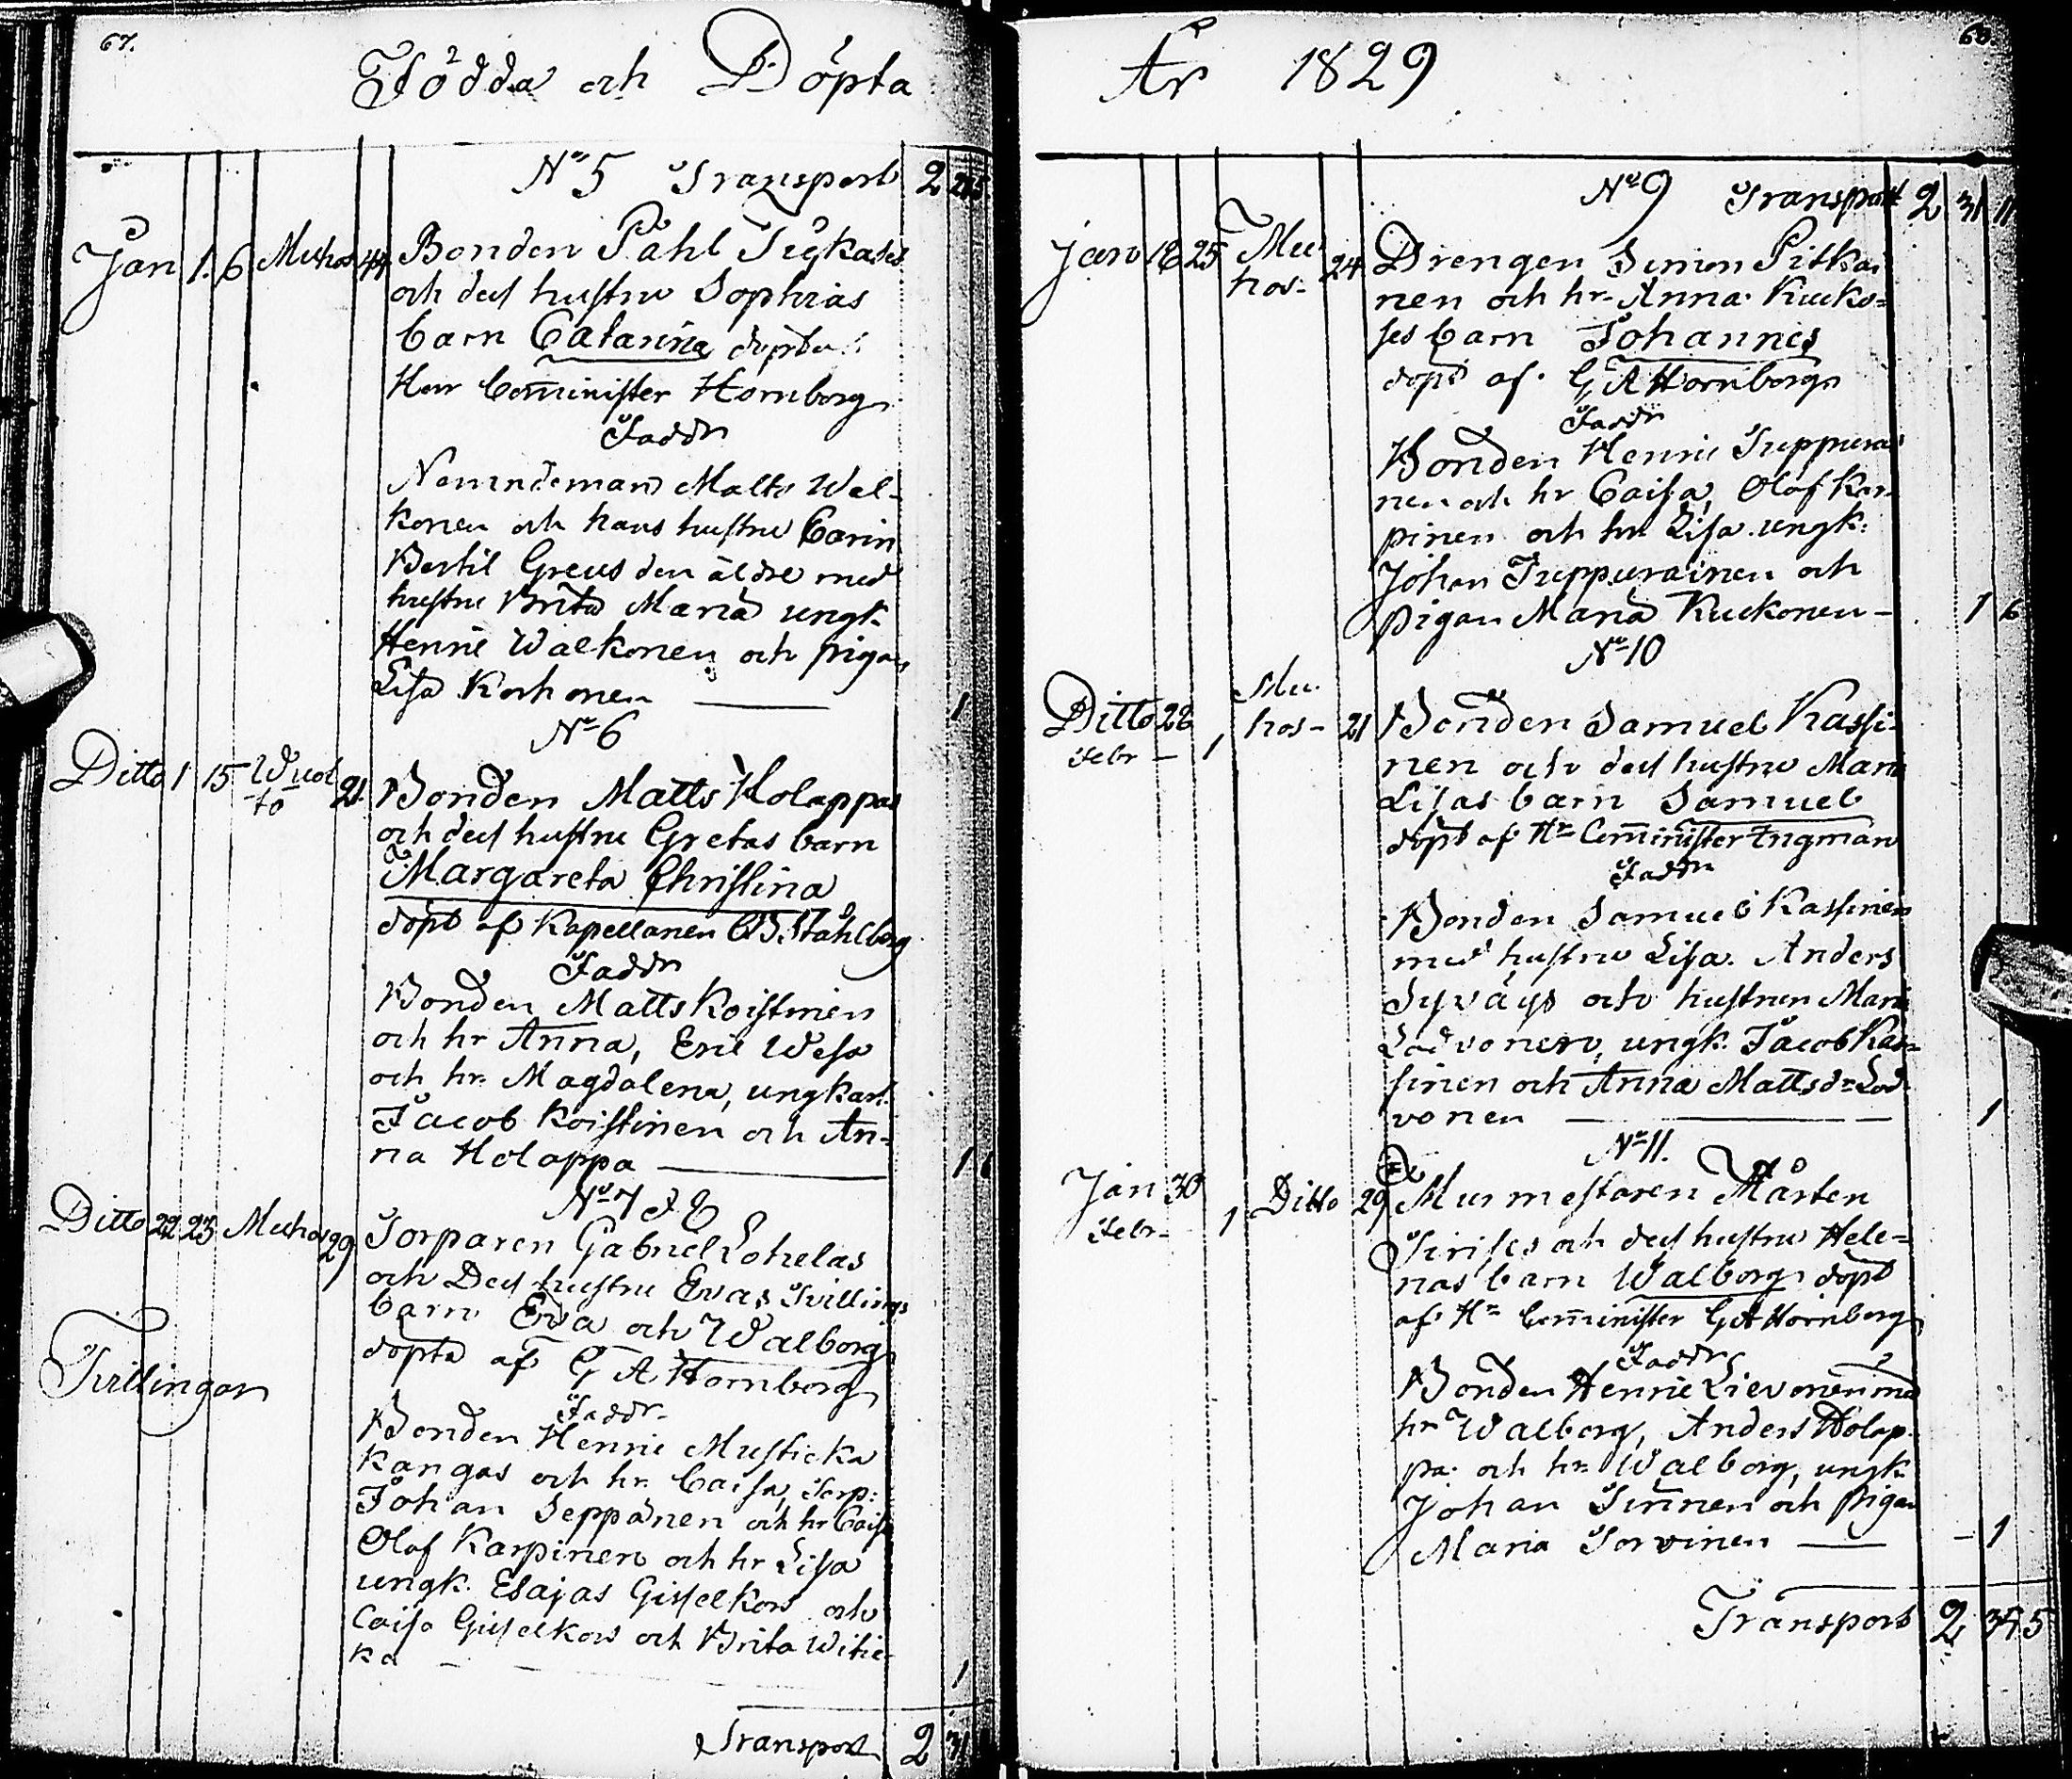 67.
Födda och Döpta
No 5 Transport 2
Jan 1. 6 Muhos 44 Bonden Påhl
och dess hustru Sophias
barn Catarina döpt
Herr Comminister Hornborg
Faddr
Nemndeman Matts Wal-
konen och hans hustru Carin
Bertil Greus den äldre med
hustru Brita Maria ungk.
Henric Walkonen och pigan
Lisa Korhonen — 1
No 6
Ditto 1 15 Wuol
to 21. Bonden Matts Holappas
och dess hustru Gretas barn
Margareta Christina
döpt af Kapellanen Ståhlberg
Faddr
Bonden Matts Koistinen
och hr Anna, Eric Wesa
och hr. Magdalena, ungkarl.
Jacob Koistinen och An-
na Holappa — 1 6
No 7 & 8
Ditto 22 23 Muhos 29 Torparen Gabriel Lohelas
och Dess hustru Evas Tvillings
barn Eva och Walborg
döpta af G A Hornborg
Tvillingar
Faddr.
Bonden Henric Musticka
kangas och hr. Caisa, Torp:
Johan Seppänen och hr Caisa
Olof Karpinen och hr Lisa
ungk. Esajas Gisselkors och
Caisa Gisselkors och Brita Witic-
ka — 1
Transport 2 31
68.
År 1829
No 9 Transport 2 31 11
Jan 18 25 Mu
hos- 24 Drengen Simon Pitkäi
nen och hr. Anna Kucko-
ses barn Johannes
döpt af G A Hornborg
Faddr
Bonden Henric Tuppurai
nen och hr Caisa, Olof Kar-
pinen och hr Lisa ungk.
Johan Tuppurainen och
pigan Maria Kuckonen — 1 6
No 10
Ditto 28 Mu-
Febr — 1 hos- 21 Bonden Samuel Kassi-
nen och dess hustru Maria
Lisas barn Samuel
döpt af Hr Comminister Engman
Faddr
Bonden Samuel Kassinen
med hustru Lisa. Anders
Syväys och hustrun Maria
Lodvonen, ungk. Jacob Kas-
sinen och Anna Mattsdr Lod-
vonen — 1
No 11.
Jan 30
Febr- 1 Ditto 29 Murmestaren Mårten
och dess hustru Hele-
nas barn Walborg döpt
af Hr Comminister G A Hornborg
Faddr
Bonden Henric Lievonen med
hr Walborg, Anders Holap-
pa och hr. Walborg, ungk.
Johan och pigan
Maria Torvinen — 1
Transport 2 34 5